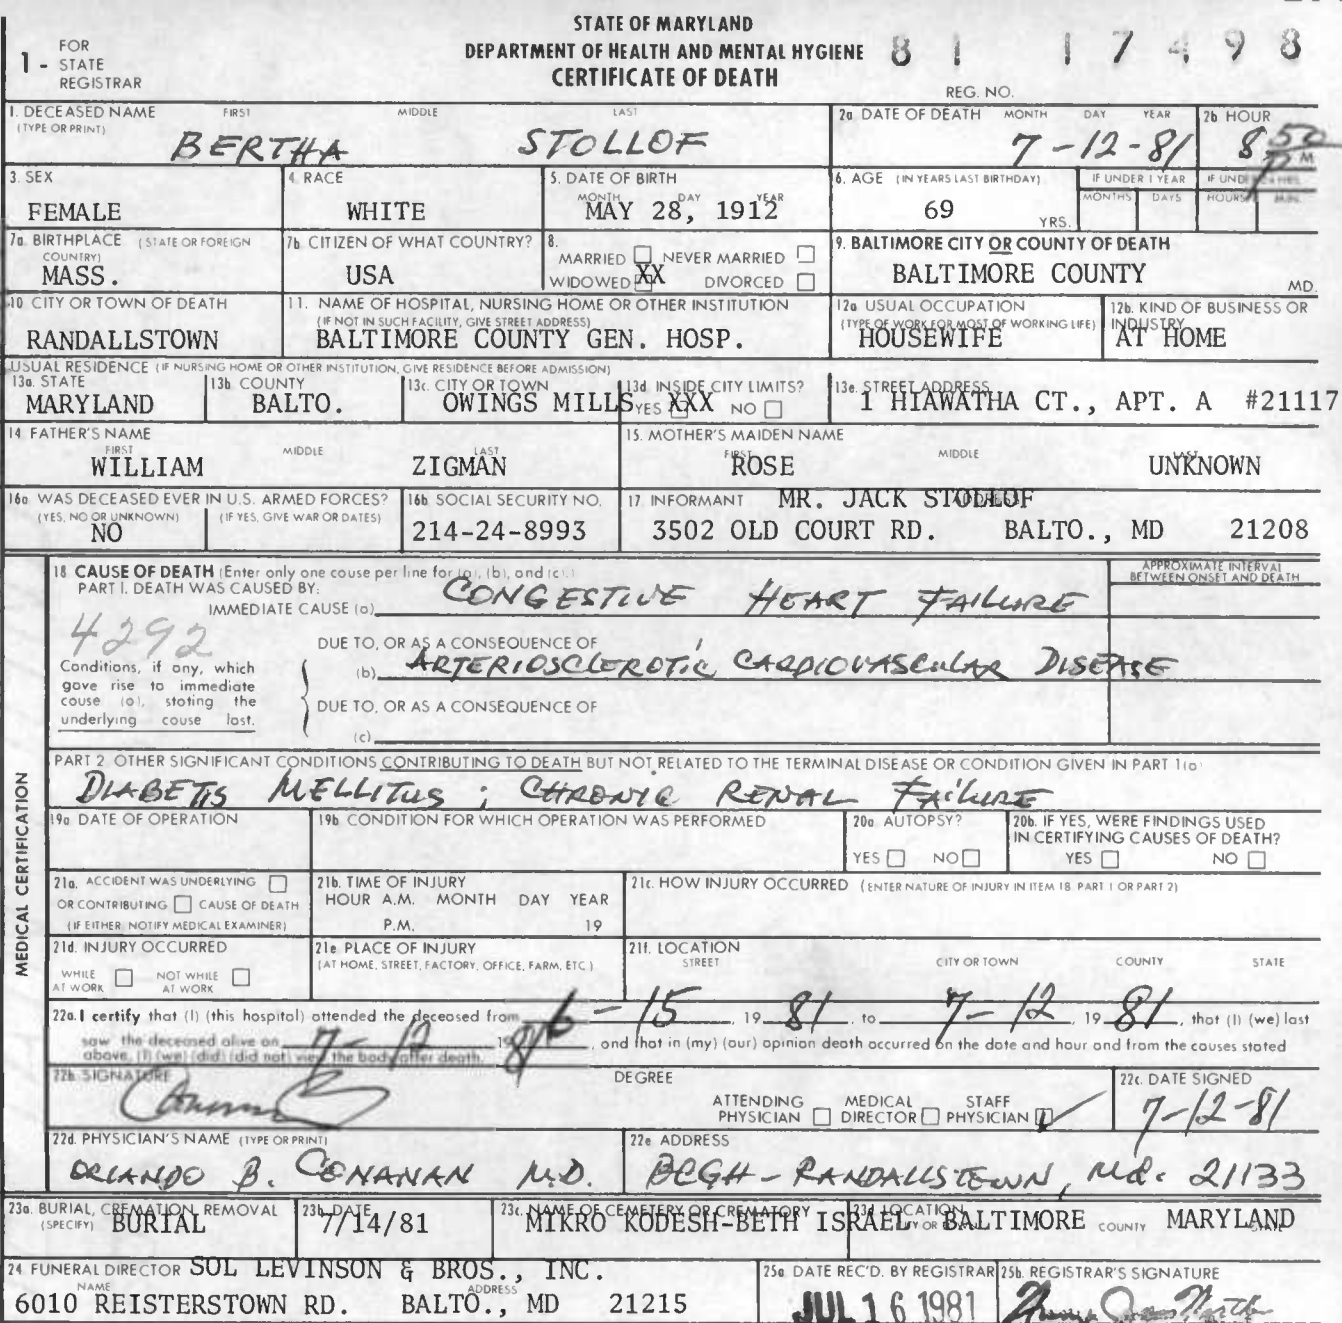 STATE OF MARYLAND
DEPARTMENT OF HEALTH AND MENTAL HYGIENE
CERTIFICATE OF DEATH
1 - FOR STATE REGISTRAR
81 17498
REG. NO.
1. DECEASED NAME (TYPE OR PRINT) FIRST MIDDLE LAST
BERTHA STOLLOF
2a DATE OF DEATH MONTH DAY YEAR
7-12-81
2b HOUR
8 50 M
3. SEX
FEMALE
4. RACE
WHITE
5. DATE OF BIRTH MONTH DAY YEAR
MAY 28, 1912
6. AGE (IN YEARS LAST BIRTHDAY)
69 YRS.
IF UNDER 1 YEAR MONTHS DAYS
IF UNDER 24 HRS. HOURS MIN.
7a. BIRTHPLACE (STATE OR FOREIGN COUNTRY)
MASS.
7b. CITIZEN OF WHAT COUNTRY?
USA
8. MARRIED NEVER MARRIED
WIDOWED XX DIVORCED
9. BALTIMORE CITY OR COUNTY OF DEATH
BALTIMORE COUNTY MD.
10. CITY OR TOWN OF DEATH
RANDALLSTOWN
11. NAME OF HOSPITAL, NURSING HOME OR OTHER INSTITUTION
(IF NOT IN SUCH FACILITY, GIVE STREET ADDRESS)
BALTIMORE COUNTY GEN. HOSP.
12a USUAL OCCUPATION
(TYPE OF WORK FOR MOST OF WORKING LIFE)
HOUSEWIFE
12b. KIND OF BUSINESS OR INDUSTRY
AT HOME
USUAL RESIDENCE (IF NURSING HOME OR OTHER INSTITUTION, GIVE RESIDENCE BEFORE ADMISSION)
13a. STATE
MARYLAND
13b COUNTY
BALTO.
13c. CITY OR TOWN
OWINGS MILLS
13d INSIDE CITY LIMITS?
YES XXX NO
13e. STREET ADDRESS
1 HIAWATHA CT., APT. A #21117
14 FATHER'S NAME FIRST MIDDLE LAST
WILLIAM ZIGMAN
15. MOTHER'S MAIDEN NAME FIRST MIDDLE LAST
ROSE UNKNOWN
16a WAS DECEASED EVER IN U.S. ARMED FORCES?
(YES, NO OR UNKNOWN) (IF YES, GIVE WAR OR DATES)
NO
16b SOCIAL SECURITY NO.
214-24-8993
17 INFORMANT ADDRESS
MR. JACK STOLLOF
3502 OLD COURT RD. BALTO., MD 21208
MEDICAL CERTIFICATION
18 CAUSE OF DEATH (Enter only one cause per line for (a), (b), and (c).)
APPROXIMATE INTERVAL BETWEEN ONSET AND DEATH
PART I. DEATH WAS CAUSED BY:
IMMEDIATE CAUSE (a) CONGESTIVE HEART FAILURE
4292
Conditions, if any, which gave rise to immediate cause (a), stating the underlying cause last.
DUE TO, OR AS A CONSEQUENCE OF
(b) ARTERIOSCLEROTIC CARDIOVASCULAR DISEASE
DUE TO, OR AS A CONSEQUENCE OF
(c)
PART 2. OTHER SIGNIFICANT CONDITIONS CONTRIBUTING TO DEATH BUT NOT RELATED TO THE TERMINAL DISEASE OR CONDITION GIVEN IN PART 1(a)
DIABETIS MELLITUS ; CHRONIC RENAL FAILURE
19a DATE OF OPERATION
19b CONDITION FOR WHICH OPERATION WAS PERFORMED
20a AUTOPSY?
YES NO
20b. IF YES, WERE FINDINGS USED IN CERTIFYING CAUSES OF DEATH?
YES NO
21a. ACCIDENT WAS UNDERLYING
OR CONTRIBUTING CAUSE OF DEATH
(IF EITHER, NOTIFY MEDICAL EXAMINER)
21b. TIME OF INJURY
HOUR A.M. MONTH DAY YEAR
P.M. 19
21c. HOW INJURY OCCURRED (ENTER NATURE OF INJURY IN ITEM 18 PART 1 OR PART 2)
21d. INJURY OCCURRED
WHILE AT WORK NOT WHILE AT WORK
21e PLACE OF INJURY
(AT HOME, STREET, FACTORY, OFFICE, FARM, ETC.)
21f. LOCATION
STREET CITY OR TOWN COUNTY STATE
22a. I certify that (I) (this hospital) attended the deceased from 6-15 19 81, to 7-12 19 81, that (I) (we) last
saw the deceased alive on 7-12 1981, and that in (my) (our) opinion death occurred on the date and hour and from the causes stated
above, (I) (we) (did) (did not) view the body after death.
22b SIGNATURE
DEGREE
ATTENDING PHYSICIAN MEDICAL DIRECTOR STAFF PHYSICIAN
22c. DATE SIGNED
7-12-81
22d. PHYSICIAN'S NAME (TYPE OR PRINT)
ORLANDO B. CONANAN M.D.
22e ADDRESS
BCGH - RANDALLSTOWN, Md. 21133
23a. BURIAL, CREMATION, REMOVAL (SPECIFY)
BURIAL
23b. DATE
7/14/81
23c. NAME OF CEMETERY OR CREMATORY
MIKRO KODESH-BETH ISRAEL
23d LOCATION CITY OR TOWN COUNTY STATE
BALTIMORE MARYLAND
24 FUNERAL DIRECTOR NAME ADDRESS
SOL LEVINSON & BROS., INC.
6010 REISTERSTOWN RD. BALTO., MD 21215
25a DATE REC'D. BY REGISTRAR
JUL 16 1981
25b. REGISTRAR'S SIGNATURE